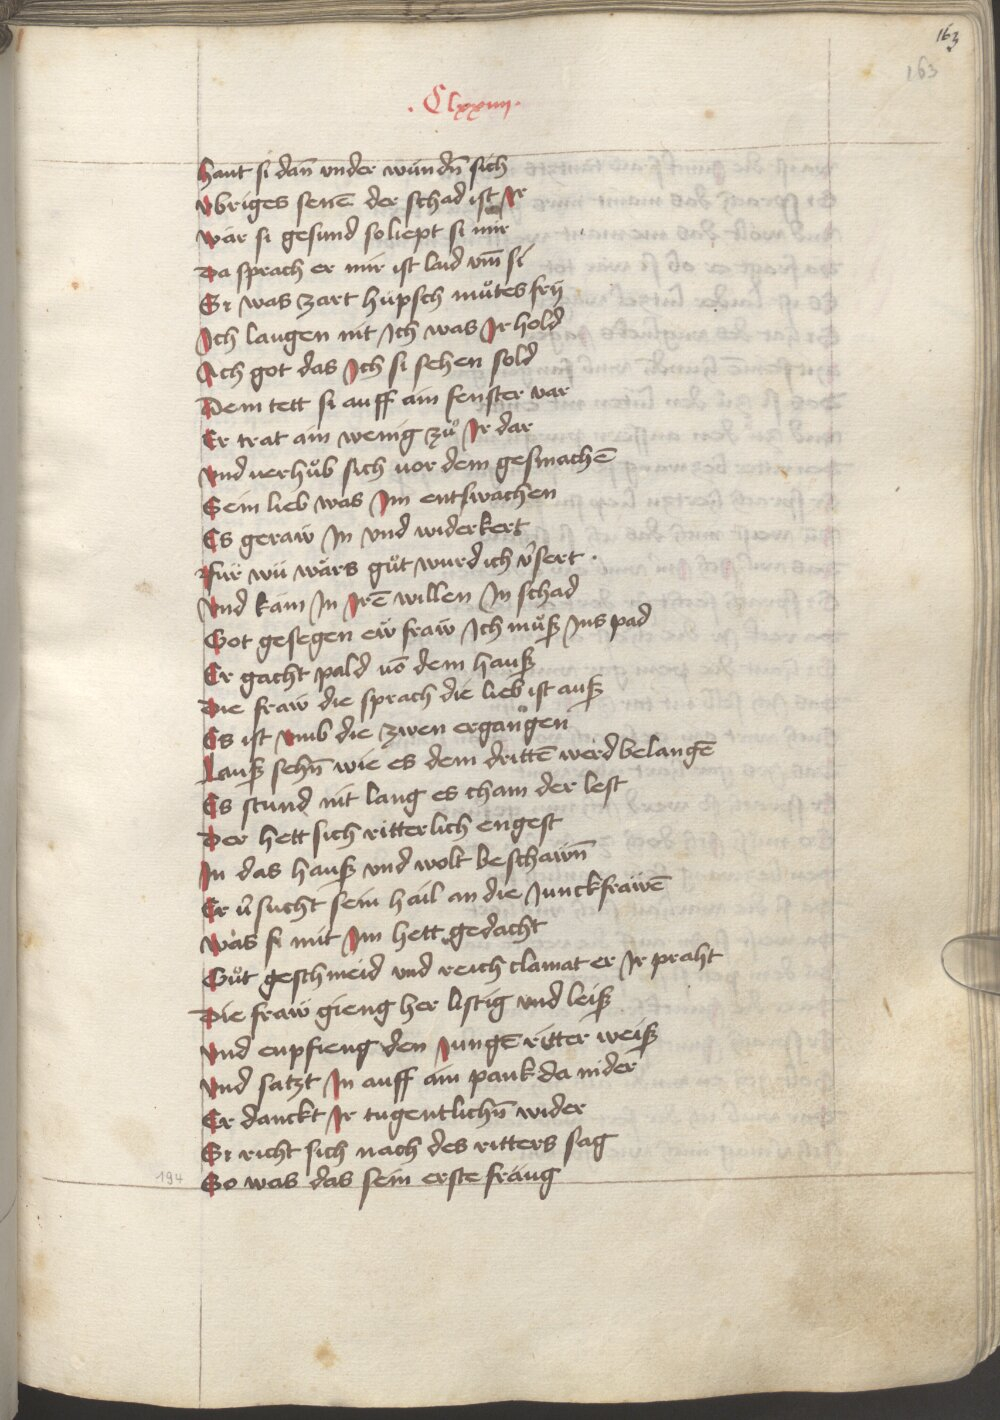 163
163
. Clxxiiij .
hant si dan̄ vnder wundn̄ sich
Vbriges senē der schad ist Ir
wär si gesund so liept si mir
Da sprach er mir ist laid vm̄ si
Si was zart hüpsch můtes frÿ
Ich laugen nit Ich was Ir hold
Ach got das Ich si sehen sold
Dem tett si auff ain fenster var
Er trat ain wenig zů Ir dar
Vnd uerhůb sich uor dem gesmachē
Sein lieb was Im entswachen
Es geraw In vnd widerkert
Für wü wärs gůt wurd ich v̄sert .
Vnd käm In Irē willen In schad
Got gesegen ew fraw Ich můß Ins pad
Er gacht pald vō dem hauß
Die fraw die sprach die lieb ist auß
Es ist vmb die zwen ergangen
Lauß sehn̄ wie es dem drittē werd belangē
Es stund nit lang es cham der lest
Der hett sich ritterlich engest
In das hauß vnd wolt beschawn̄
Er v̄sucht sein hail an die Junckfrawē
was si mit Im hett gedacht
Gůt geschmeid vnd reich clainat er Ir praht
Die fraw gieng her listig vnd leiß
Vnd enpfieng den Jungē ritter weiß
Vnd satzt In auff ain pank da nider
Er danckt Ir tugentlichn̄ wider
Si richt sich nach des ritters sag
So was das sein erste fraug
194